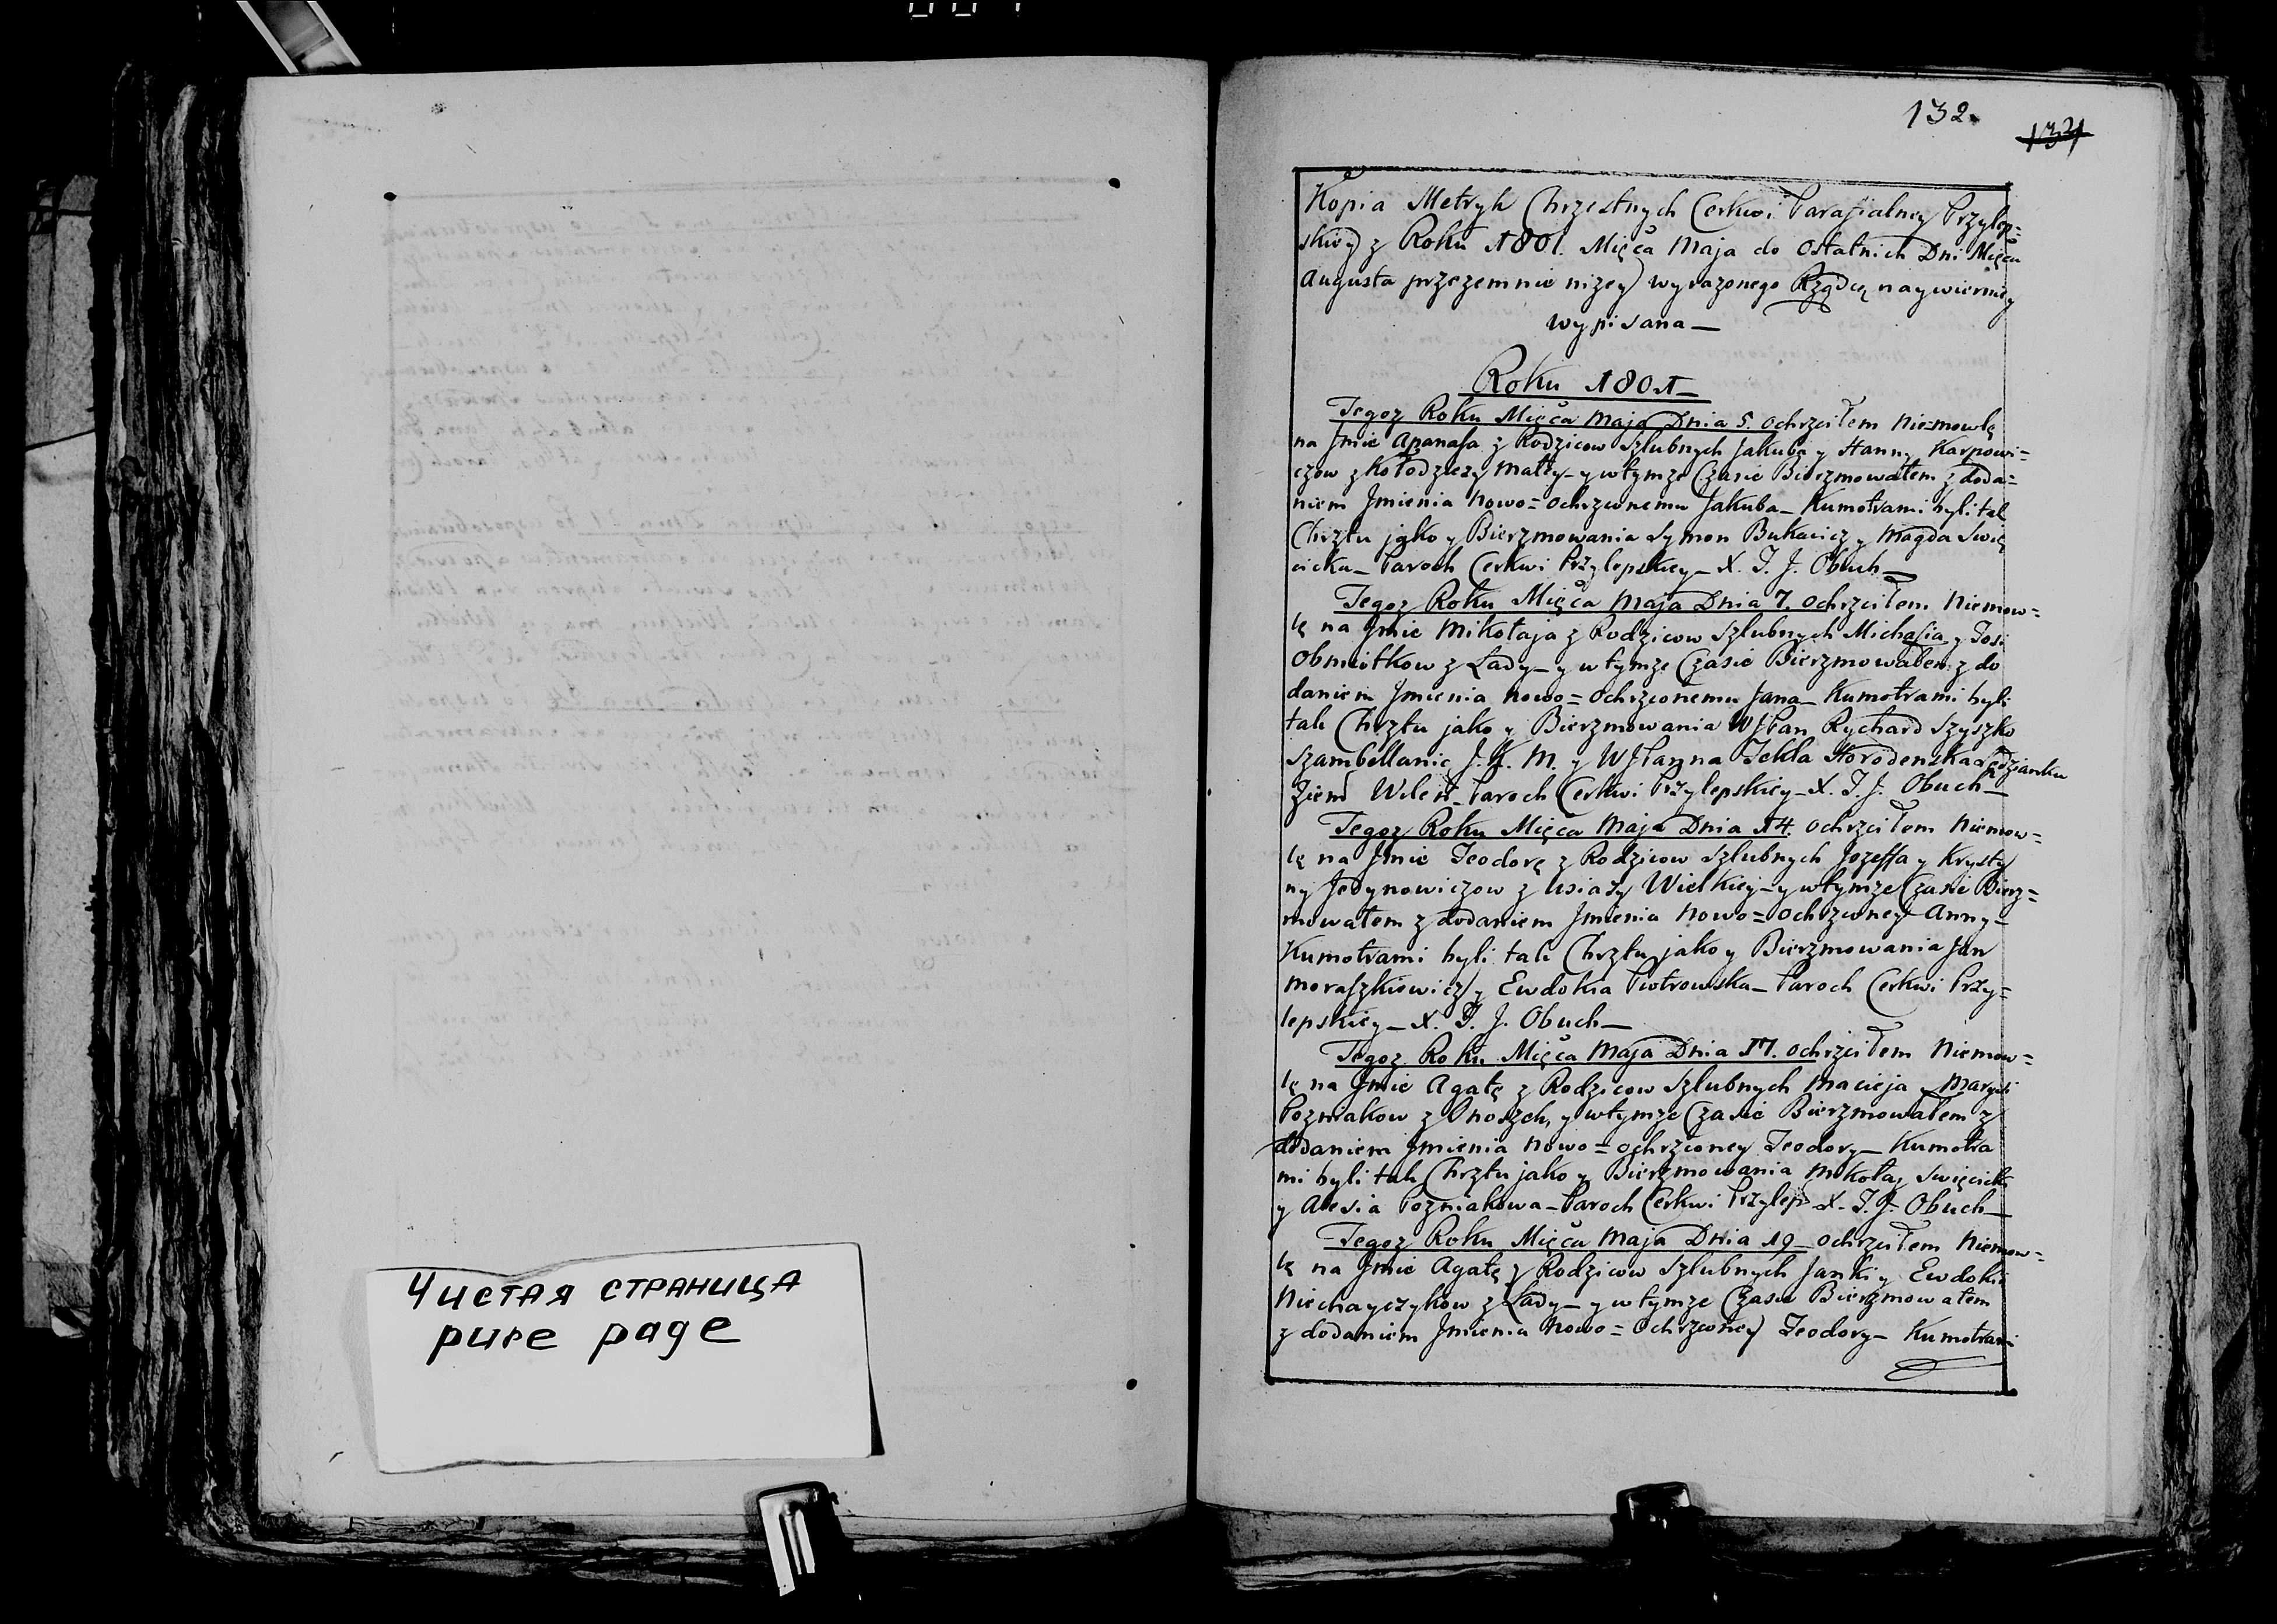 Чистая страница
pure page
132.
131
Kopia Metryk Chrzestnych Cerkwi Parafialney Przylep=
skiey z Roku 1801. Mięca Maja do Ostatnich Dni Mięca
Augusta przezemnie niżey wyrażonego Rządcę naywierniey
wypisana—
Roku 1801—
Tegoż Roku Mięca Maja Dnia 5. ochrzciłem Niemowlę
na Jmie Apanasa z Rodzicow Szlubnych Jakuba y Hanny Karpowi=
czow z Kołodziezy Małey— y w tymże Czasie Bierzmowałem z doda=
niem Jmienia Nowo=ochrzconemu Jakuba— Kumotrami byli tak
Chrztu jako y Bierzmowania Symon Bukacicz y Magda Swię
cicka— Paroch Cerkwi Przylepskiey— X. T. J. Obuch—
Tegoż Roku Mięca Maja Dnia 7. ochrzciłem Niemow=
lę na Jmie Mikołaja z Rodzicow Szlubnych Michasia y Tosi
Obmiotkow z Lady— y w tymże Czasie Bierzmowałem z do
daniem Jmienia Nowo=ochrzconemu Jana— Kumotrami byli
tak Chrztu jako y Bierzmowania WJPan Rychard Szyszko
Szambellanic J. K. M. y WJPanna Tekla Horodenska Sędzianka
Ziem Wileń— Paroch Cerkwi Przylepskiey— X. T. J. Obuch—
Tegoż Roku Mięca Maja Dnia 14. ochrzciłem Niemow=
lę na Jmie Teodorę z Rodzicow Szlubnych Jozeffa y Krysty
ny Jedynowiczow z Usiaży Wielkiey— y w tymże Czasie Bierz=
mowałem z dodaniem Jmienia Nowo=ochrzconey Anny—
Kumotrami byli tak Chrztu jako y Bierzmowania Jan
Moraszkiewicz y Ewdokia Piotrowska— Paroch Cerkwi Przy=
lepskiey— X. T. J. Obuch—
Tegoż Roku Mięca Maja Dnia 17. ochrzciłem Niemow=
lę na Jmie Agatę z Rodzicow Szlubnych Macieja y Marysi
Pozniakow z Onoszek, y w tymże Czasie Bierzmowałem z
dodaniem Jmienia Nowo=ochrzconey Teodory— Kumotra
mi byli tak Chrztu jako y Bierzmowania Mikołay Swięcicki
y Alesia Pozniakowa— Paroch Cerkwi Przylep X. T. J. Obuch—
Tegoż Roku Mięca Maja Dnia 19— ochrzciłem Niemow=
lę na Jmie Agatę z Rodzicow Szlubnych Janki y Ewdokii
Niechayczykow z Lady— y w tymże Czasie Bierzmowałem
z dodaniem Jmienia Nowo=ochrzconey Teodory— Kumotrami